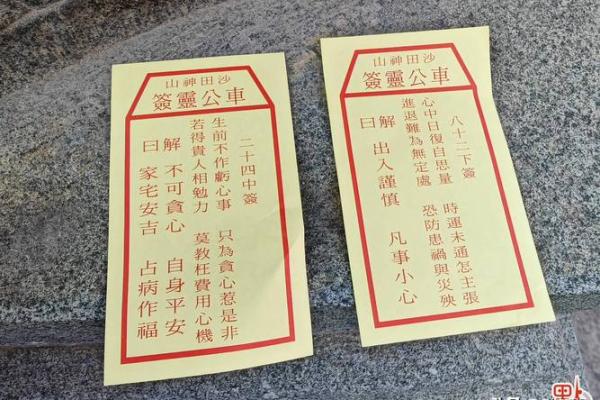 山神田沙
簽靈公車
二十四中簽
生前不作虧心事　只為貪心惹是非
若得貴人相勉力　莫教枉費用心機
解　不可貪心　自身平安
曰　家宅安吉　占病作福
山神田沙
簽靈公車
八十二下簽
心中日復自思量　時運未通怎主張
進退難為無定處　恐防患禍與災殃
解　出入謹慎　凡事小心
曰